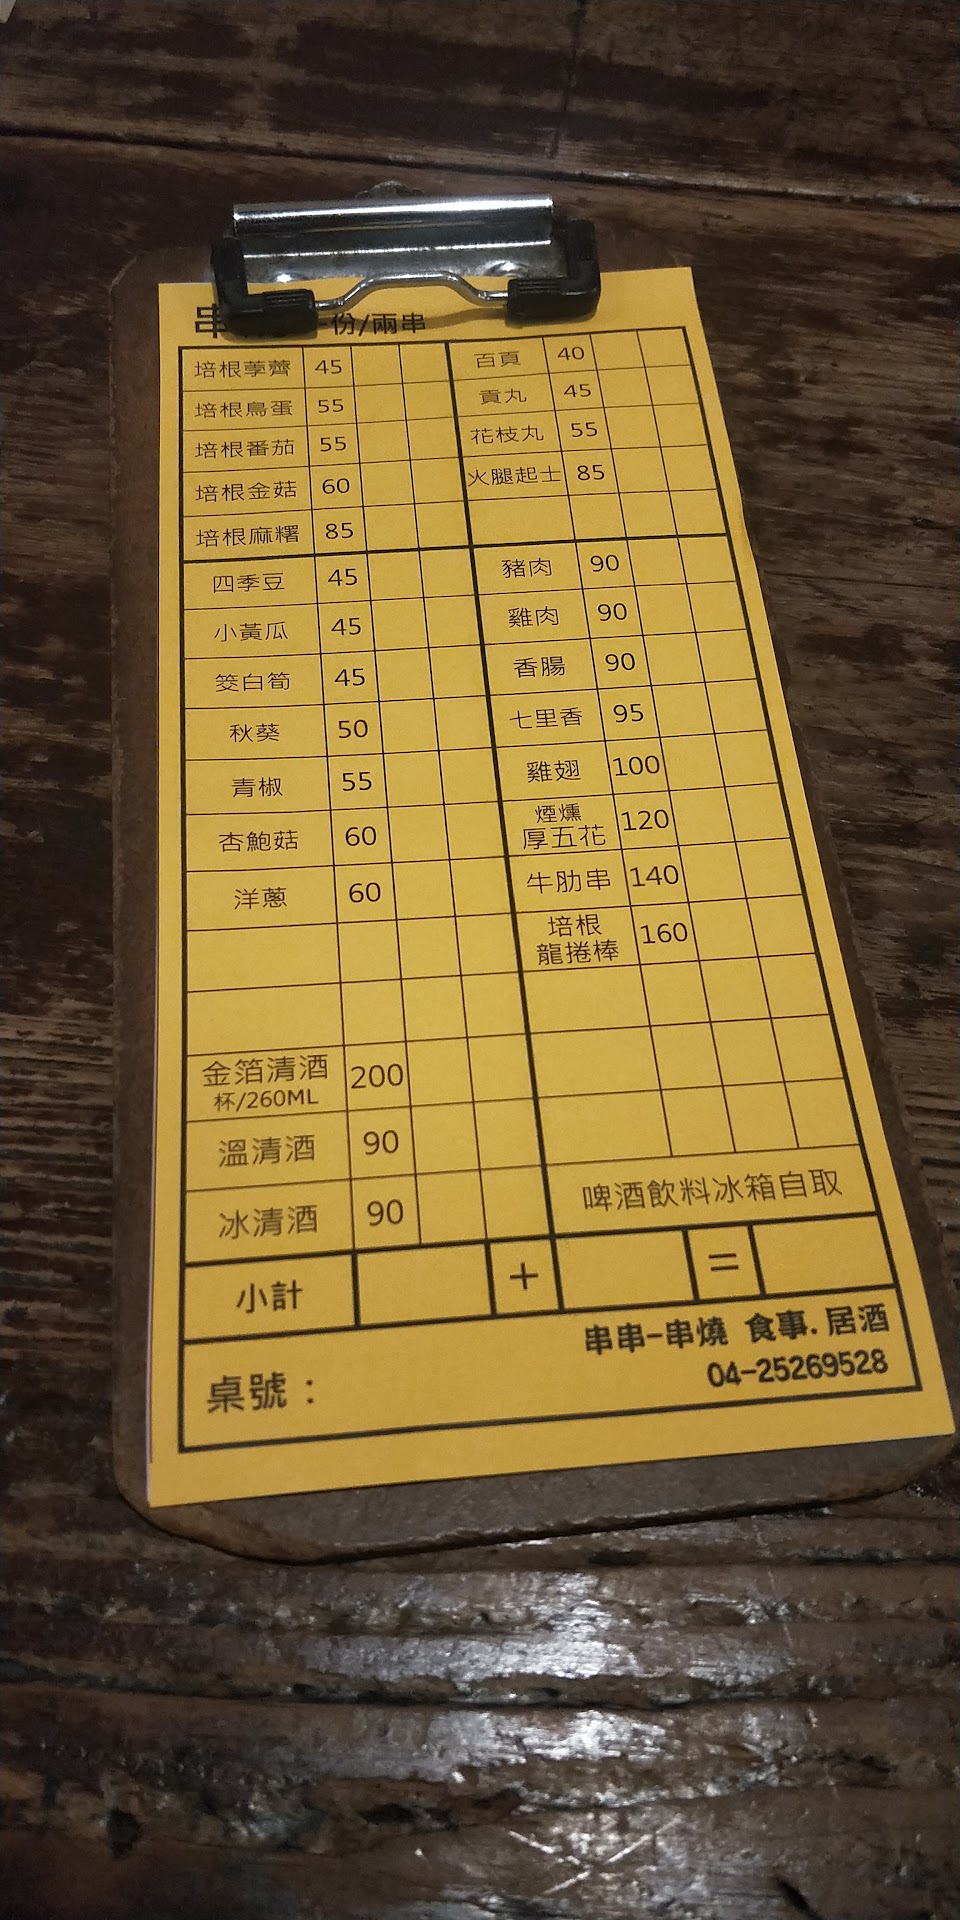 串 一份/兩串
培根荸薺 45
培根鳥蛋 55
培根番茄 55
培根金菇 60
培根麻糬 85
百頁 40
貢丸 45
花枝丸 55
火腿起士 85
四季豆 45
小黃瓜 45
筊白筍 45
秋葵 50
青椒 55
杏鮑菇 60
洋蔥 60
豬肉 90
雞肉 90
香腸 90
七里香 95
雞翅 100
煙燻
厚五花 120
牛肋串 140
培根
龍捲棒 160
金箔清酒 200
杯/260ML
溫清酒 90
冰清酒 90
啤酒飲料冰箱自取
小計 + =
串串-串燒 食事.居酒
04-25269528
桌號：